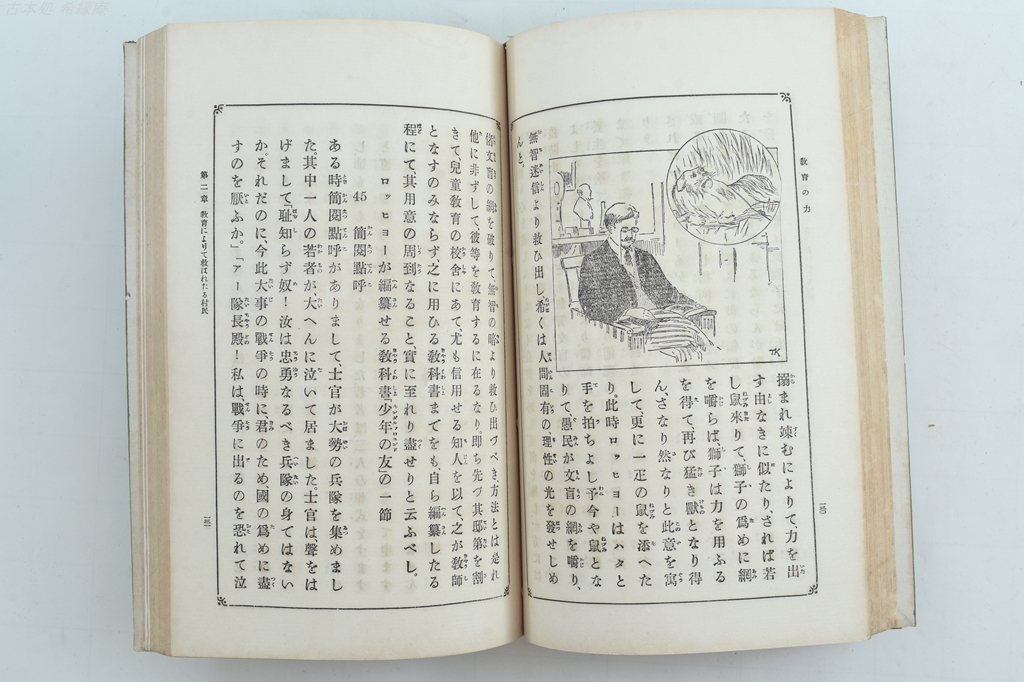 古本処 希縁庵
教育の力
搦まれ竦むによりて、力を出
す由なきに似たり、されば若
し鼠来りて、獅子の為めに網
を嚙らば、獅子は力を用ふる
を得て、再び猛き獣となり得
ん、さなり然なりと此意を寓
して、更に一疋の鼠を添へた
り。此時ロッヒヨーはハタと
手を拍ちよし予今や鼠とな
りて、愚民が文盲の網を嚙り、
無智迷信より救ひ出し、希くは人間固有の、理性の光を發せしめ
んと。
TK
俗文盲の網を破りて、無智の暗より救ひ出づべき、方法とは是れ
他に非ずして、彼等を教育するに在るなり。即ち先づ其邸第を割
きて、兒童教育の校舍にあて、尤も信用せる知人を以て之が教師
となすのみならず、之に用ひる教科書までをも、自ら編纂したる
程にて、其用意の周到なること、實に至れり盡せりと云ふべし。
ロッヒヨーが編纂せる教科書「少年の友」の一節
45 簡閲點呼
ある時簡閲點呼がありまして、士官が大勢の兵隊を集めまし
た。其中一人の若者が大へんに泣いて居ました。士官は、聲をは
げまして「耻知らず奴！汝は忠勇なるべき兵隊の身てはない
か。それだのに、今此大事の戰爭の時に、君のため、國の爲めに盡
すのを厭ふか。」「ァー隊長殿！私は、戰爭に出るのを恐れて泣
第二章 教育によりて救はれたる村民